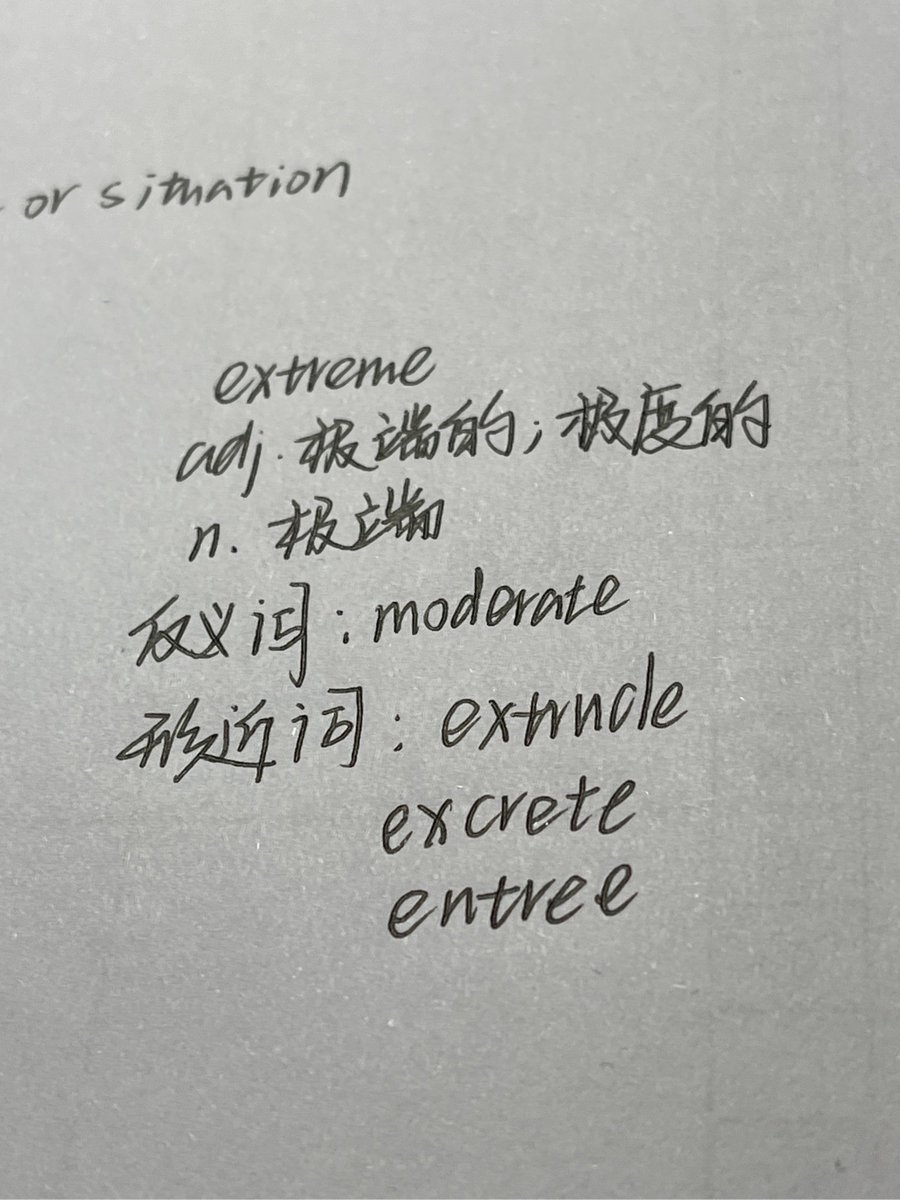 or situation
extreme
adj. 极端的；极度的
n. 极端
反义词：moderate
形近词：extrude
excrete
entree